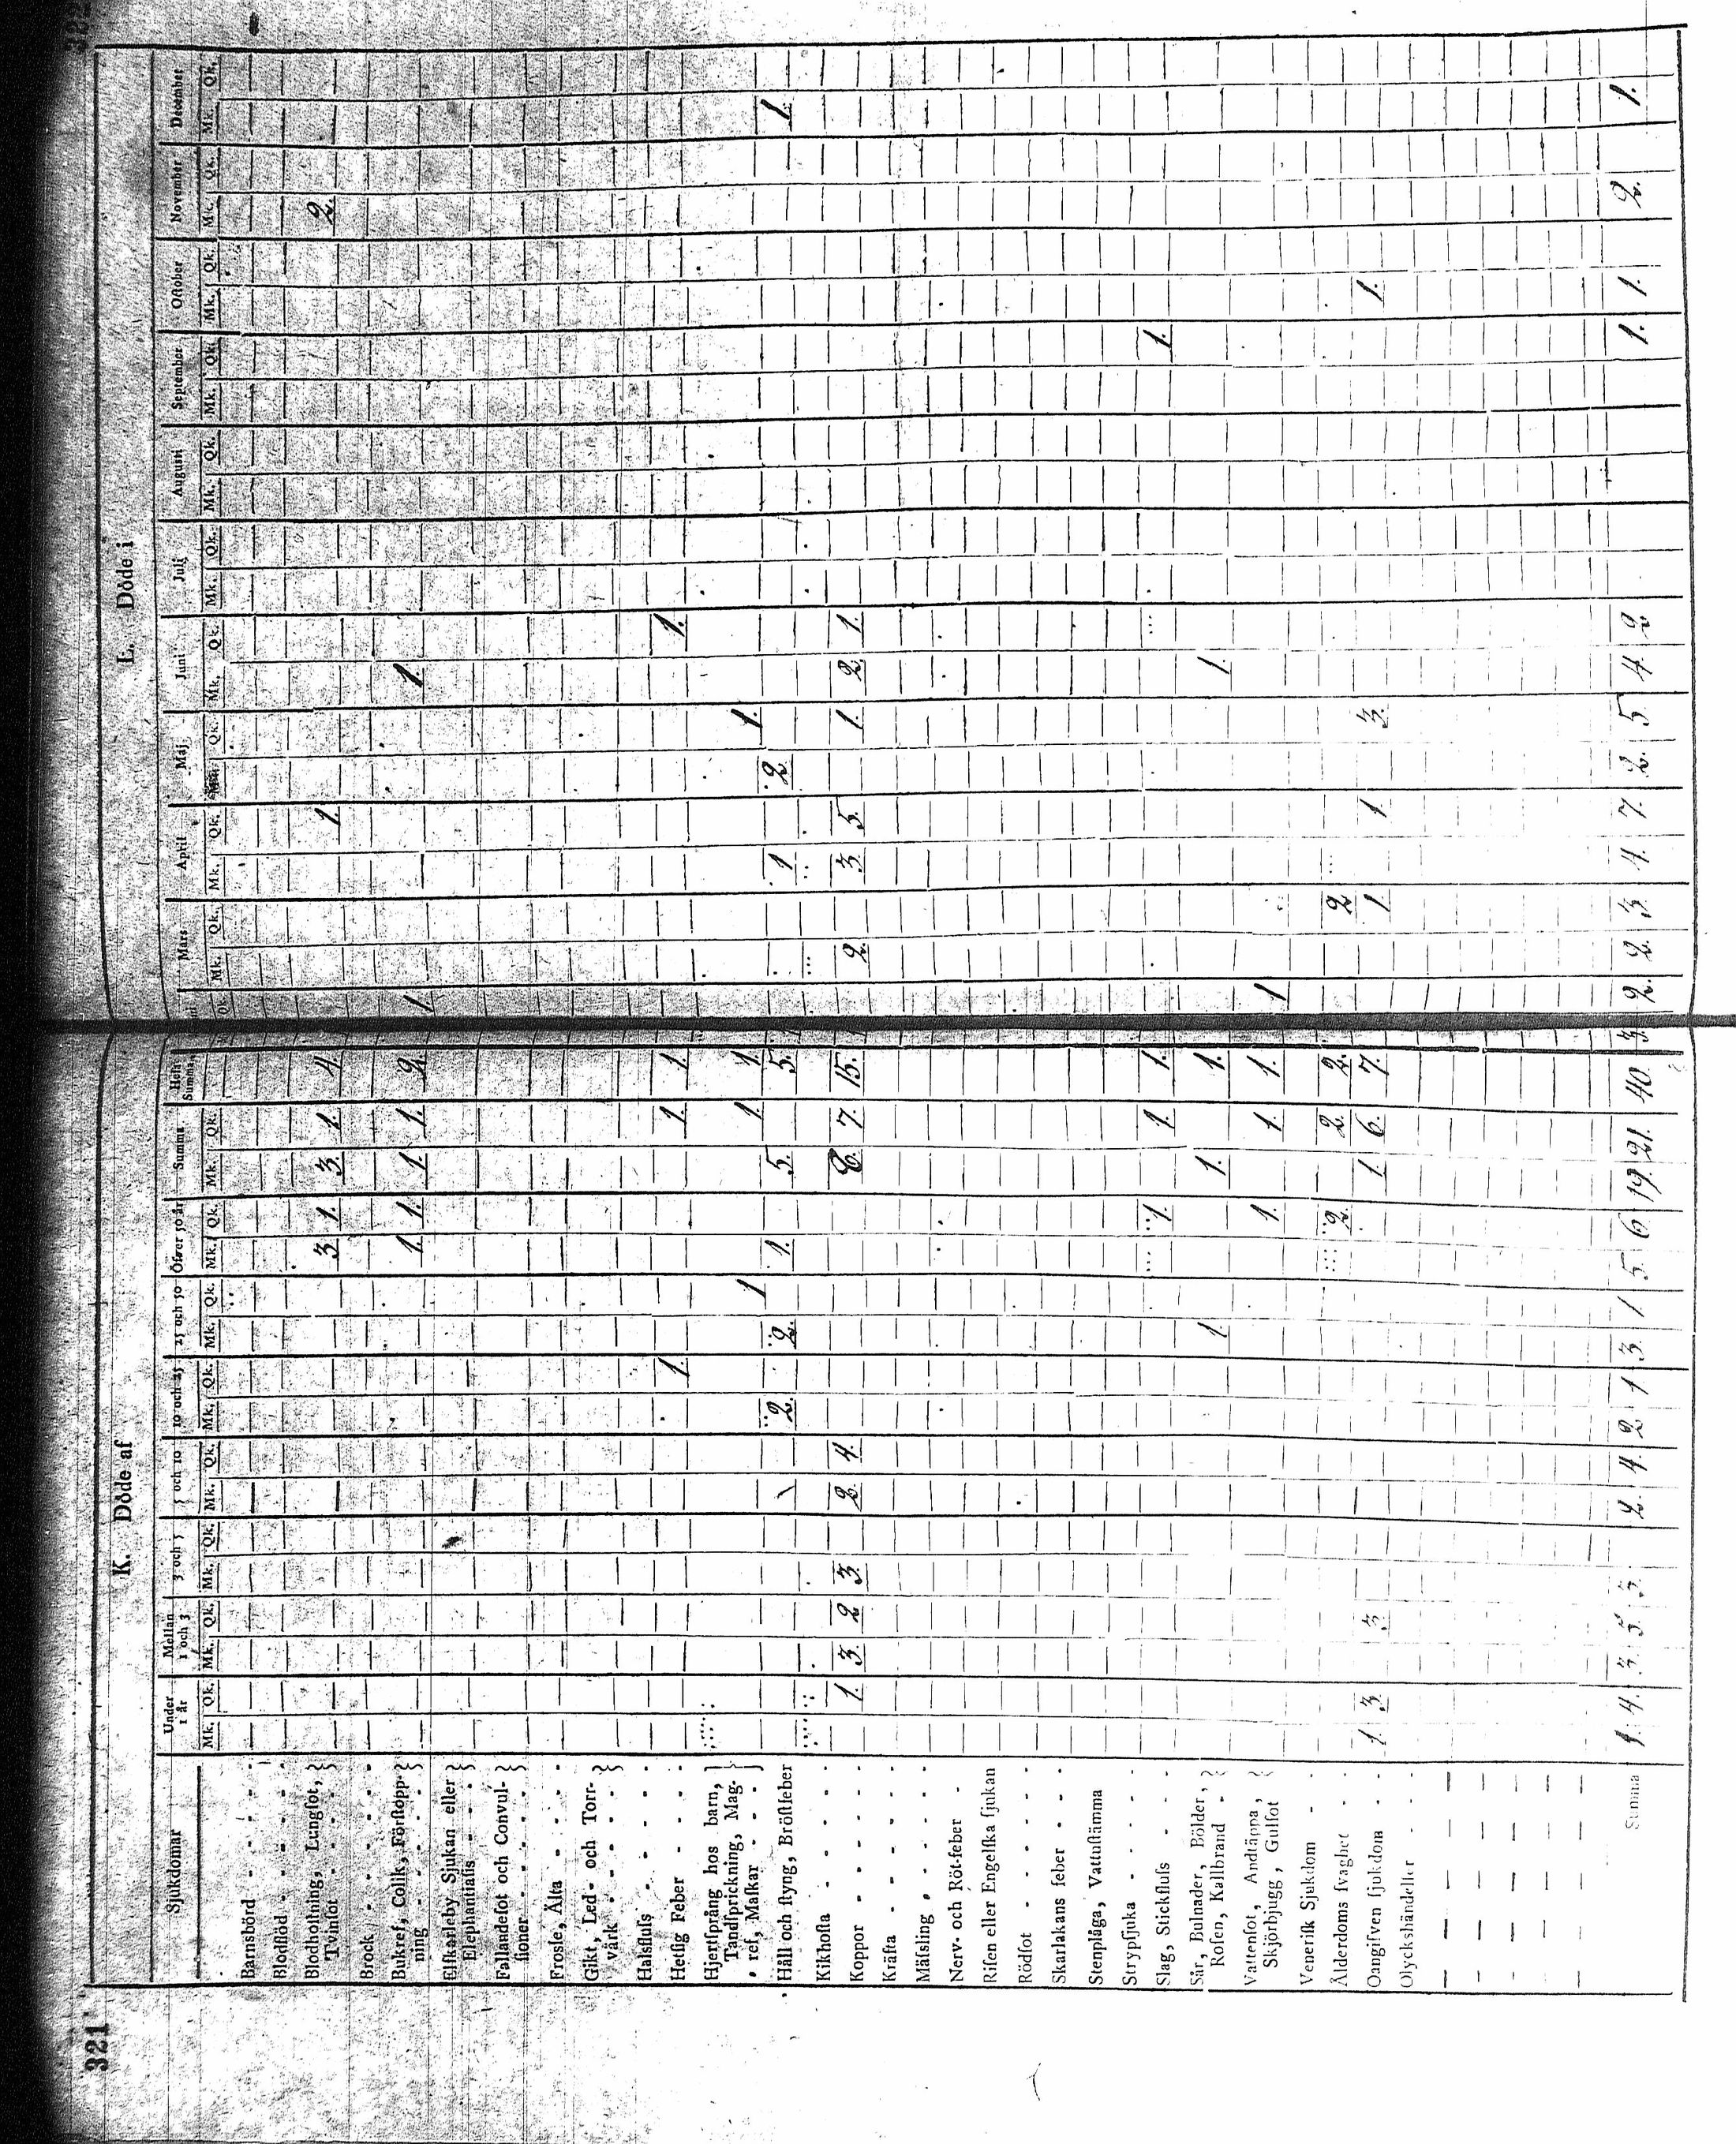 321
K. Döde af
Sjukdomar | Under 1 år | Mellan 1 och 3 | 3 och 5 | 5 och 10 | 10 och 25 | 25 och 50 | Öfwer 50 år | Summa | Hela Summan
Mk. Qk. Mk. Qk. Mk. Qk. Mk. Qk. Mk. Qk. Mk. Qk. Mk. Qk. Mk. Qk.
Barnsbörd
Blodſtöd
Blodhoſtning, Lungſot,
Tvinſot 3 1. 3. 1. 4
Brock
Bukref, Colik, Förſtopp-
ning 1. 1. 1. 1. 2.
Elſkarleby Sjukan eller
Elephantiaſis
Fallandeſot och Convul-
ſioner
Froſſe, Älta
Gikt, Led- och Torr-
värk
Halsfluſs
Hetſig Feber 1. 1. 1.
Hjertſprång hos barn,
Tandſprickning, Mag-
ref, Maſkar 1 1. 1.
Håll och ſtyng, Bröſtfeber 2. 2. 1. 5. 5.
Kikhoſta
Koppor 1. 3 2 3 2 4. 8. 7. 15.
Kräfta
Mäſsling
Nerv- och Röt-feber
Riſen eller Engelſka ſjukan
Rödſot
Skarlakans feber
Stenplåga, Vattuſtämma
Strypſjuka
Slag, Stickfluſs 1. 1. 1.
Sår, Bulnader, Bölder,
Roſen, Kallbrand 1 1. 1.
Vattenſot, Andtäppa,
Skjörbjugg, Gulſot 1. 1. 1.
Veneriſk Sjukdom
Ålderdoms ſvaghet 2. 2. 2.
Oangifven ſjukdom 1 3 3 1 6. 7.
Olyckshändelſer
Summa 1. 4. 3. 5. 3. 2. 4. 2 1 3. 1 5. 6 19 21. 40
L. Döde i
Mars | April | Maj | Juni | Julj | Auguſti | September | Oktober | November | December
Qk. Mk. Qk. Mk. Qk. Mk. Qk. Mk. Qk. Mk. Qk. Mk. Qk. Mk. Qk. Mk. Qk. Mk. Qk. Mk. Qk.
1. 2.
1 1
1.
1.
1 2. 1.
2 3 5. 1. 2 1.
1.
1
1
2
1 1 3. 1.
3. 2. 2 3 4. 7. 2. 5 4. 2 1. 1. 2. 1.